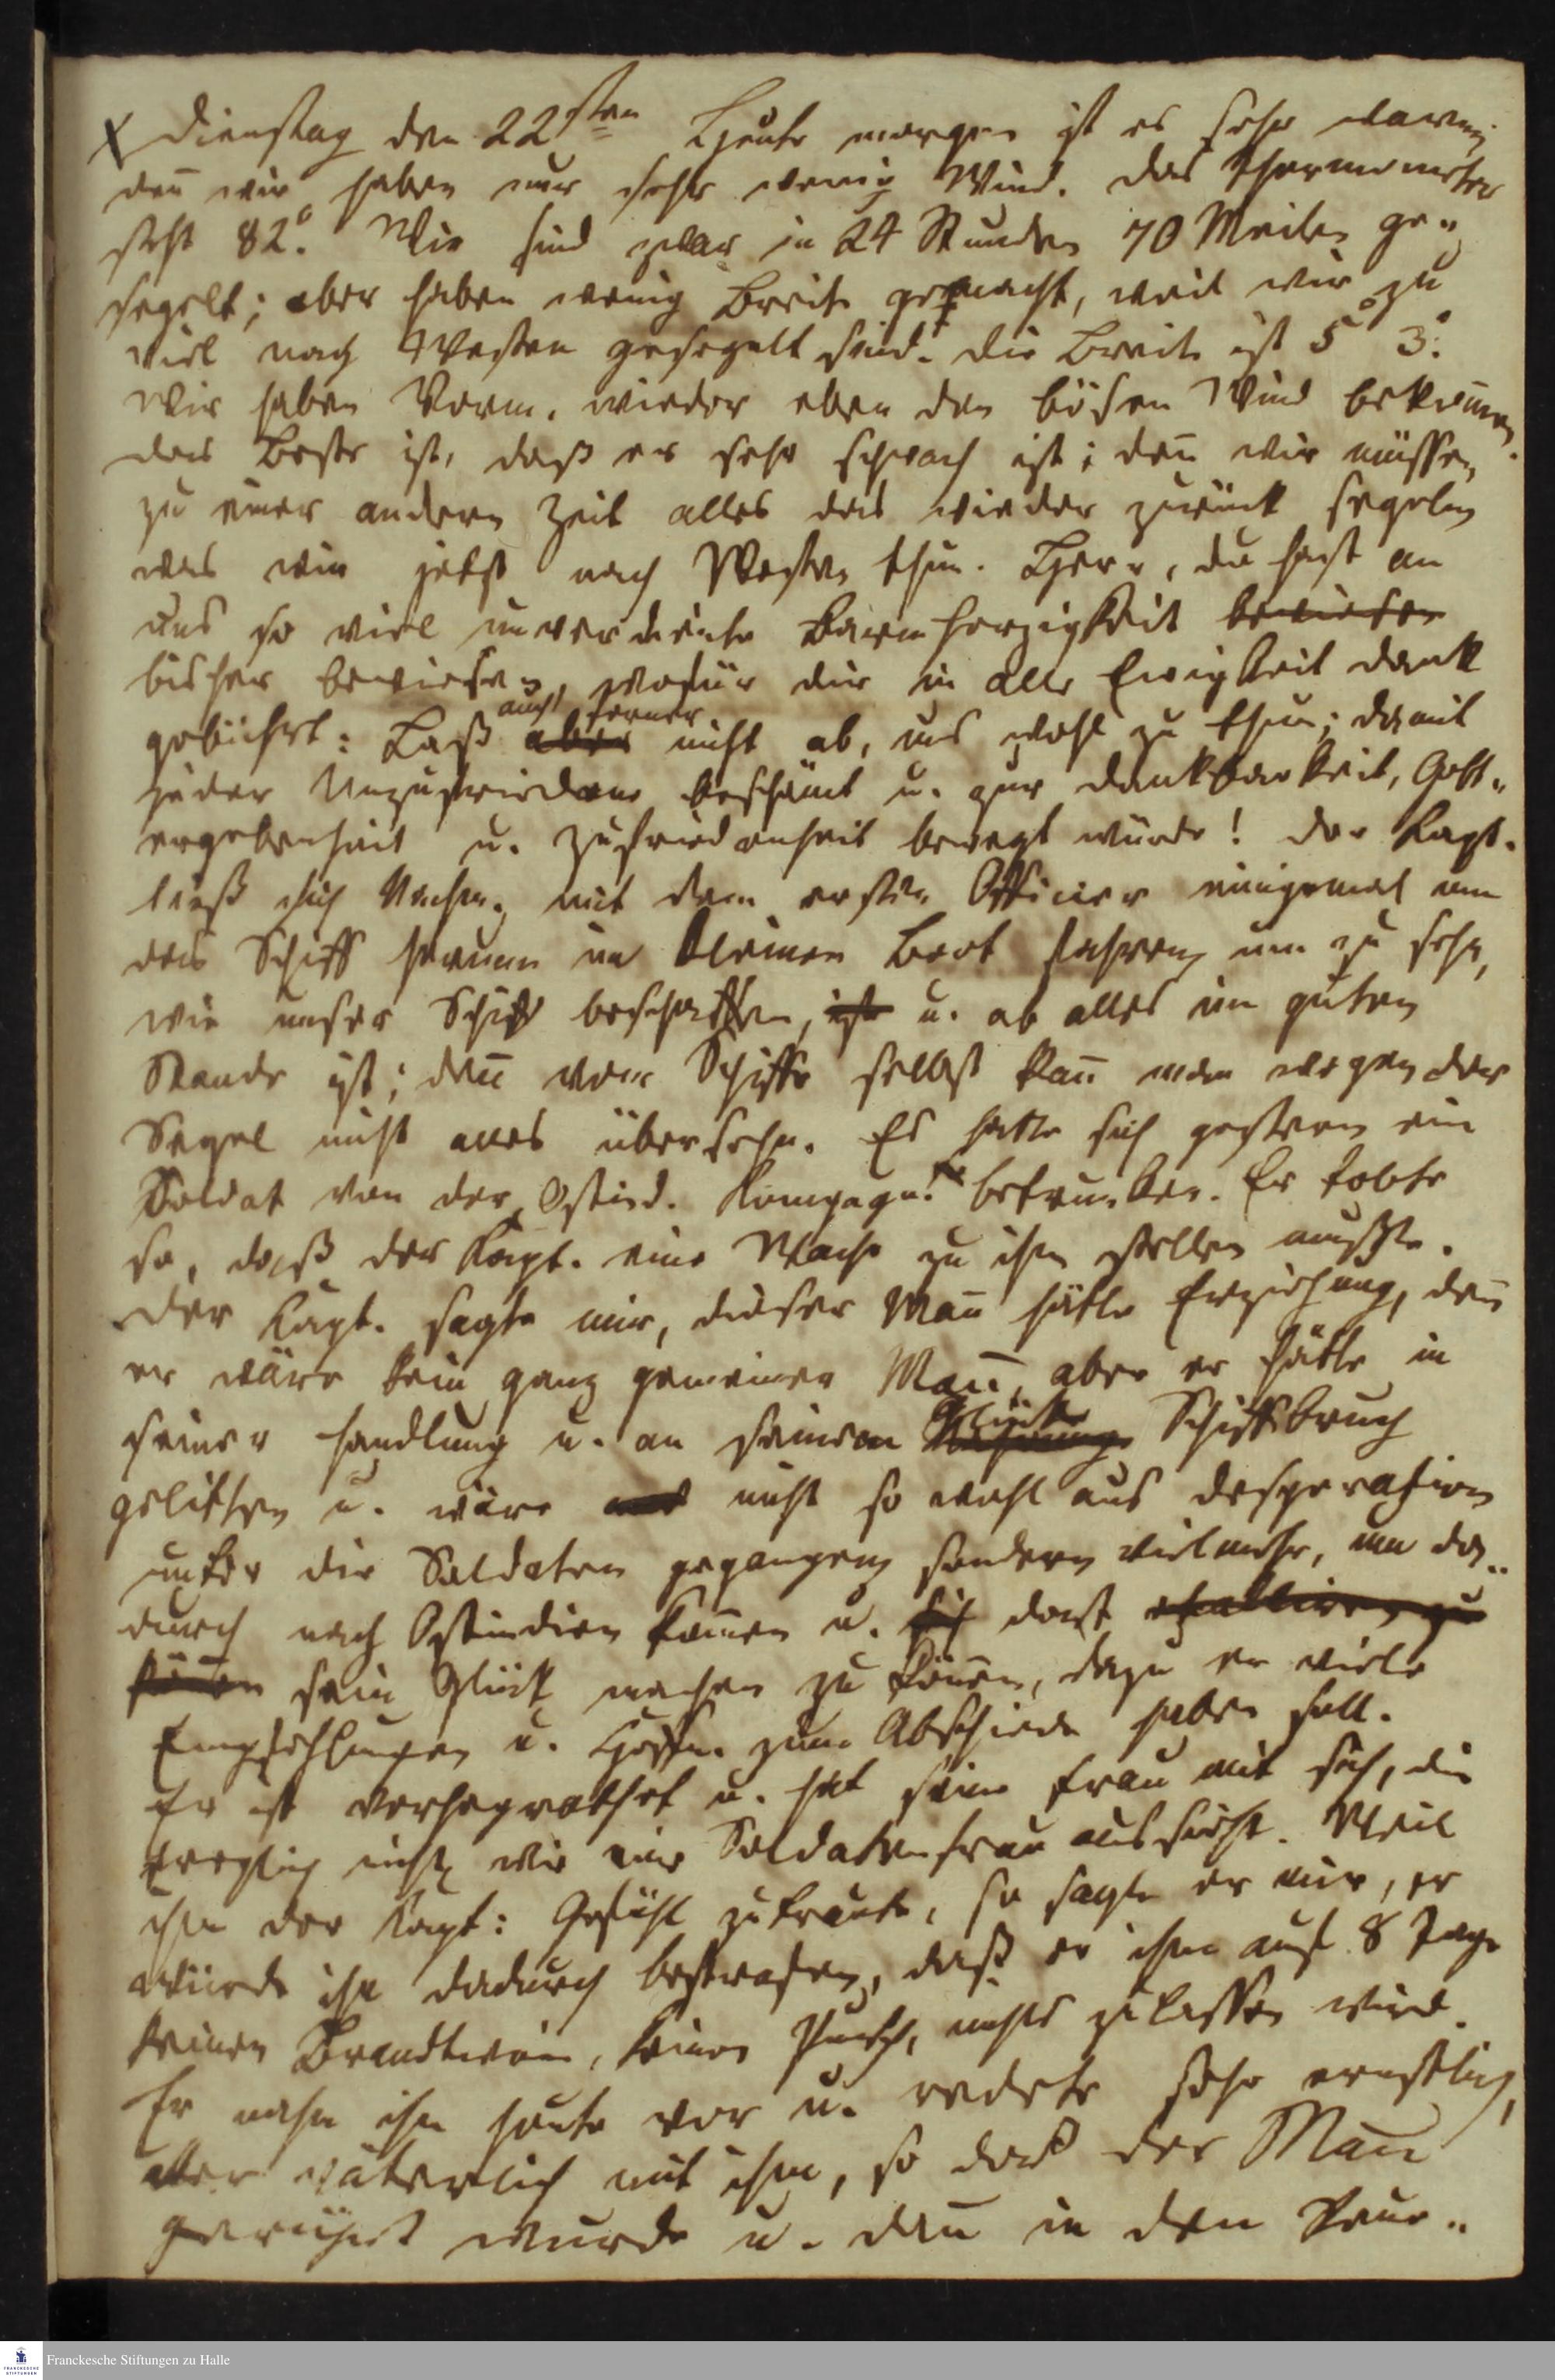 X Dienstag den 22sten Heute morgen ist es sehr warm;
deñ wir haben nur sehr wenig Wind. Das Thermometer
steht 82°. Wir sind zwar in 24 Stunden 70 Meilen ge„
segelt; aber haben wenig Breite gemacht, weil wir zu
viel nach Westen gesegelt sind. Die Breite ist 5° 3°.
Wir haben Vorm. wieder eben den bösen Wind bekom̄en.
das Beste ist, daß er sehr schwach ist; deñ wir müssen
zu einer andern Zeit alles das wieder zurück segeln
was wir jetzt nach Westen thun. Herr, du hast an
uns so viel unverdiente Barmherzigkeit bewiesen
bisher bewiesen, wofür dir in alle Ewigkeit Dank
gebührt: Laß aber auch ferner nicht ab, uns wohl zu thun; damit
jeder Unzufriedene beschämt u. zur Dankbarkeit, Gott„
ergebenheit u. Zufriedenheit bewegt würde! Der Kapt.
ließ sich Nachm. mit dem ersten Officier einigemal um
das Schiff herum im kleinen Boot fahren, um zu sehn,
wie unser Schiff beschaffen, ist u. ob alles im guten
Stande ist; deñ vom Schiffe selbst kañ man wegen der
Segel nicht alles übersehn. Es hatte sich gestern ein
Soldat von der Ostind. Kompagnie betrunken. Er tobte
so, daß der Kapt. eine Wache zu ihm stellen mußte.
Der Kapt. sagte mir, dieser Mañ hätte Erziehung, deñ
er wäre kein ganz gemeiner Mañ, aber er hätte in
seiner Handlung u. an seinem Glücke Schiffbruch
gelitten u. wäre nicht so wohl aus Desperation
unter die Soldaten gegangen, sondern vielmehr, um da„
durch nach Ostindien kom̄en u. sich dort etabliren zu
köñen sein Glück machen zu köñen, dazu er viele
Empfehlungen u. Hoffn. zum Abschiede haben soll.
Er ist verheyrathet u. hat seine Frau mit sich, die
freylich nicht wie eine Soldatenfrau aussieht. Weil
ihm der Kapt: Gefühl zutraute, so sagte er mir, er
würde ihn dadurch bestrafen, daß er ihm auf 8 Tage
keinen Brandtwein, keinen Punsch, nichts zulassen wird.
Er nahm ihn heute vor u. redete sehr ernstlich,
aber väterlich mit ihm, so daß der Mañ
gerührt wurde u. dañ in den
Franckesche Stiftungen zu Halle